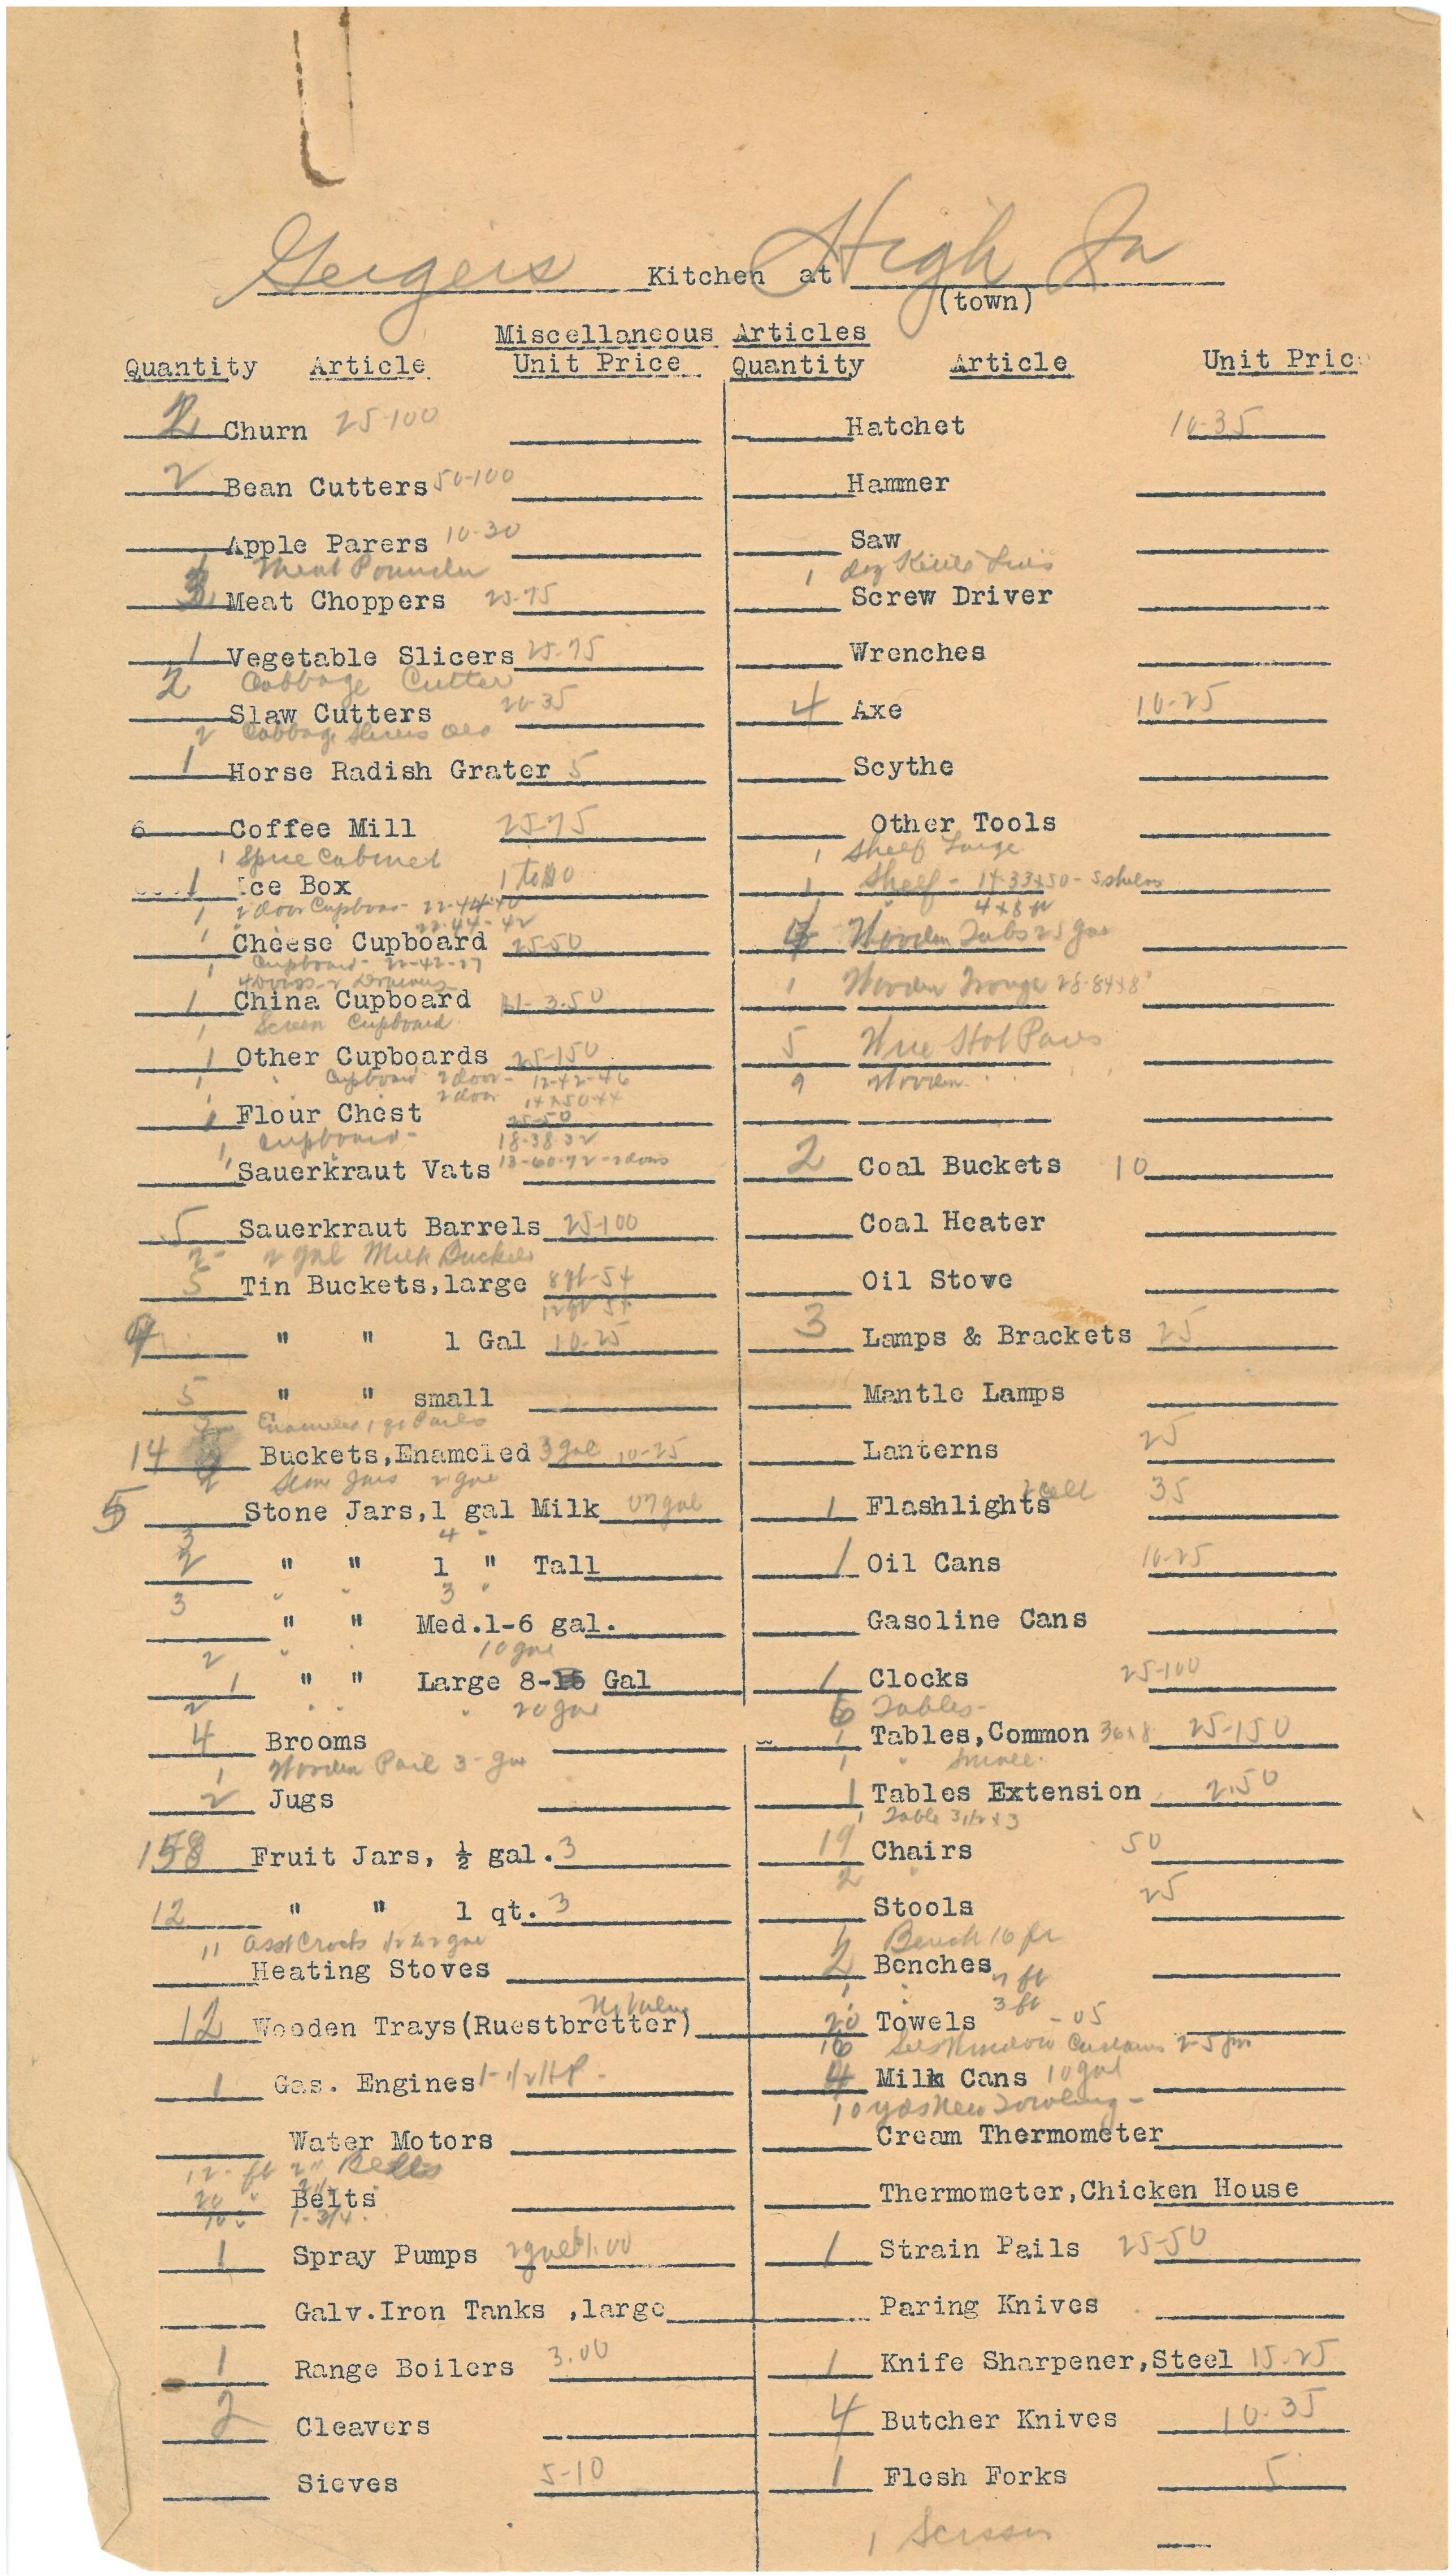 Geigers Kitchen at High Ja
(town)
Miscellaneous Articles
Quantity Article Unit Price Quantity Article Unit Price
2 Churn 25-100
2 Bean Cutters 50-100
Apple Parers 10-30
1 Meat Pounder
3 Meat Choppers 25-75
1 Vegetable Slicers 25-75
2 Cabbage Cutter
Slaw Cutters 20-35
2 Cabbage Slicers
1 Horse Radish Grater 5
6 Coffee Mill 25-75
1 Spice Cabinet
1 Ice Box
1 2 door Cupboar- 22-44-40
22-44-42
1 Cheese Cupboard 25-50
1 Cupboard- 22-42-27
1 China Cupboard 3.50
1 Screen Cupboard
1 Other Cupboards 25-150
1 Cupboard 2 door- 12-42-46
2 door
1 Flour Chest 25-50
1 Cupboard- 18-38-32
1 Sauerkraut Vats 13-60-72-2 doors
5 Sauerkraut Barrels 25-100
2- 2 gal Milk Buckets
5 Tin Buckets,large 8qt-54
12qt
" " 1 Gal 10-25
5 " " small
Enameled 1 gal Pails
14 Buckets,Enameled 3 gal 10-25
2 Stone Jars 2 gal
5 Stone Jars,1 gal Milk
3 4 "
2 " " 1 " Tall
3 " " 3 "
" " Med.1-6 gal.
2 " 10 gal
1 " " Large 8-15 Gal
2 " " " 20 gal
4 Brooms
1 Wooden Pail 3-gal
2 Jugs
158 Fruit Jars, ½ gal. 3
12 " " 1 qt. 3
11 Asst Crocks 1/2 to 2 gal
Heating Stoves
12 Wooden Trays(Ruestbretter) No value
1 Gas. Engines 1-1/2 HP-
Water Motors
12- ft 2" Belts
20 " 2 1/2
Belts
10 " 1-3/4
1 Spray Pumps 2 gal $1.00
Galv.Iron Tanks ,large
1 Range Boilers 3.00
2 Cleavers
Sieves 5-10
Hatchet 10-35
Hammer
Saw
1 doz Kettle Lids
Screw Driver
Wrenches
4 Axe 10-25
Scythe
Other Tools
1 Shelf Large
1 Shelf - 14-33x50 - 5 shelves
" 4x8 ft
Wooden Tubs 25 gal
1 Wooden Trough 28-84x8"
5 Wire Hot Pads
9 Wooden " "
2 Coal Buckets 10
Coal Heater
Oil Stove
3 Lamps & Brackets 25
Mantle Lamps
Lanterns 25
1 Flashlights 2 cell 35
1 Oil Cans 10-25
Gasoline Cans
1 Clocks 25-100
6 Tables-
1 Tables,Common 36x8 25-150
1 " Small
1 Tables Extension 2.50
1 Table 3 1/2 x 3
19 Chairs 50
2 "
Stools 25
1 Bench 16 ft
2 Benches 7 ft
1 " 3 ft
20 Towels -05
16 Sets Window Curtains
4 Milk Cans 10 gal
10 yds New Toweling-
Cream Thermometer
Thermometer,Chicken House
1 Strain Pails 25-50
Paring Knives
1 Knife Sharpener,Steel 15-25
4 Butcher Knives 10-35
1 Flesh Forks 5
1 Scissors